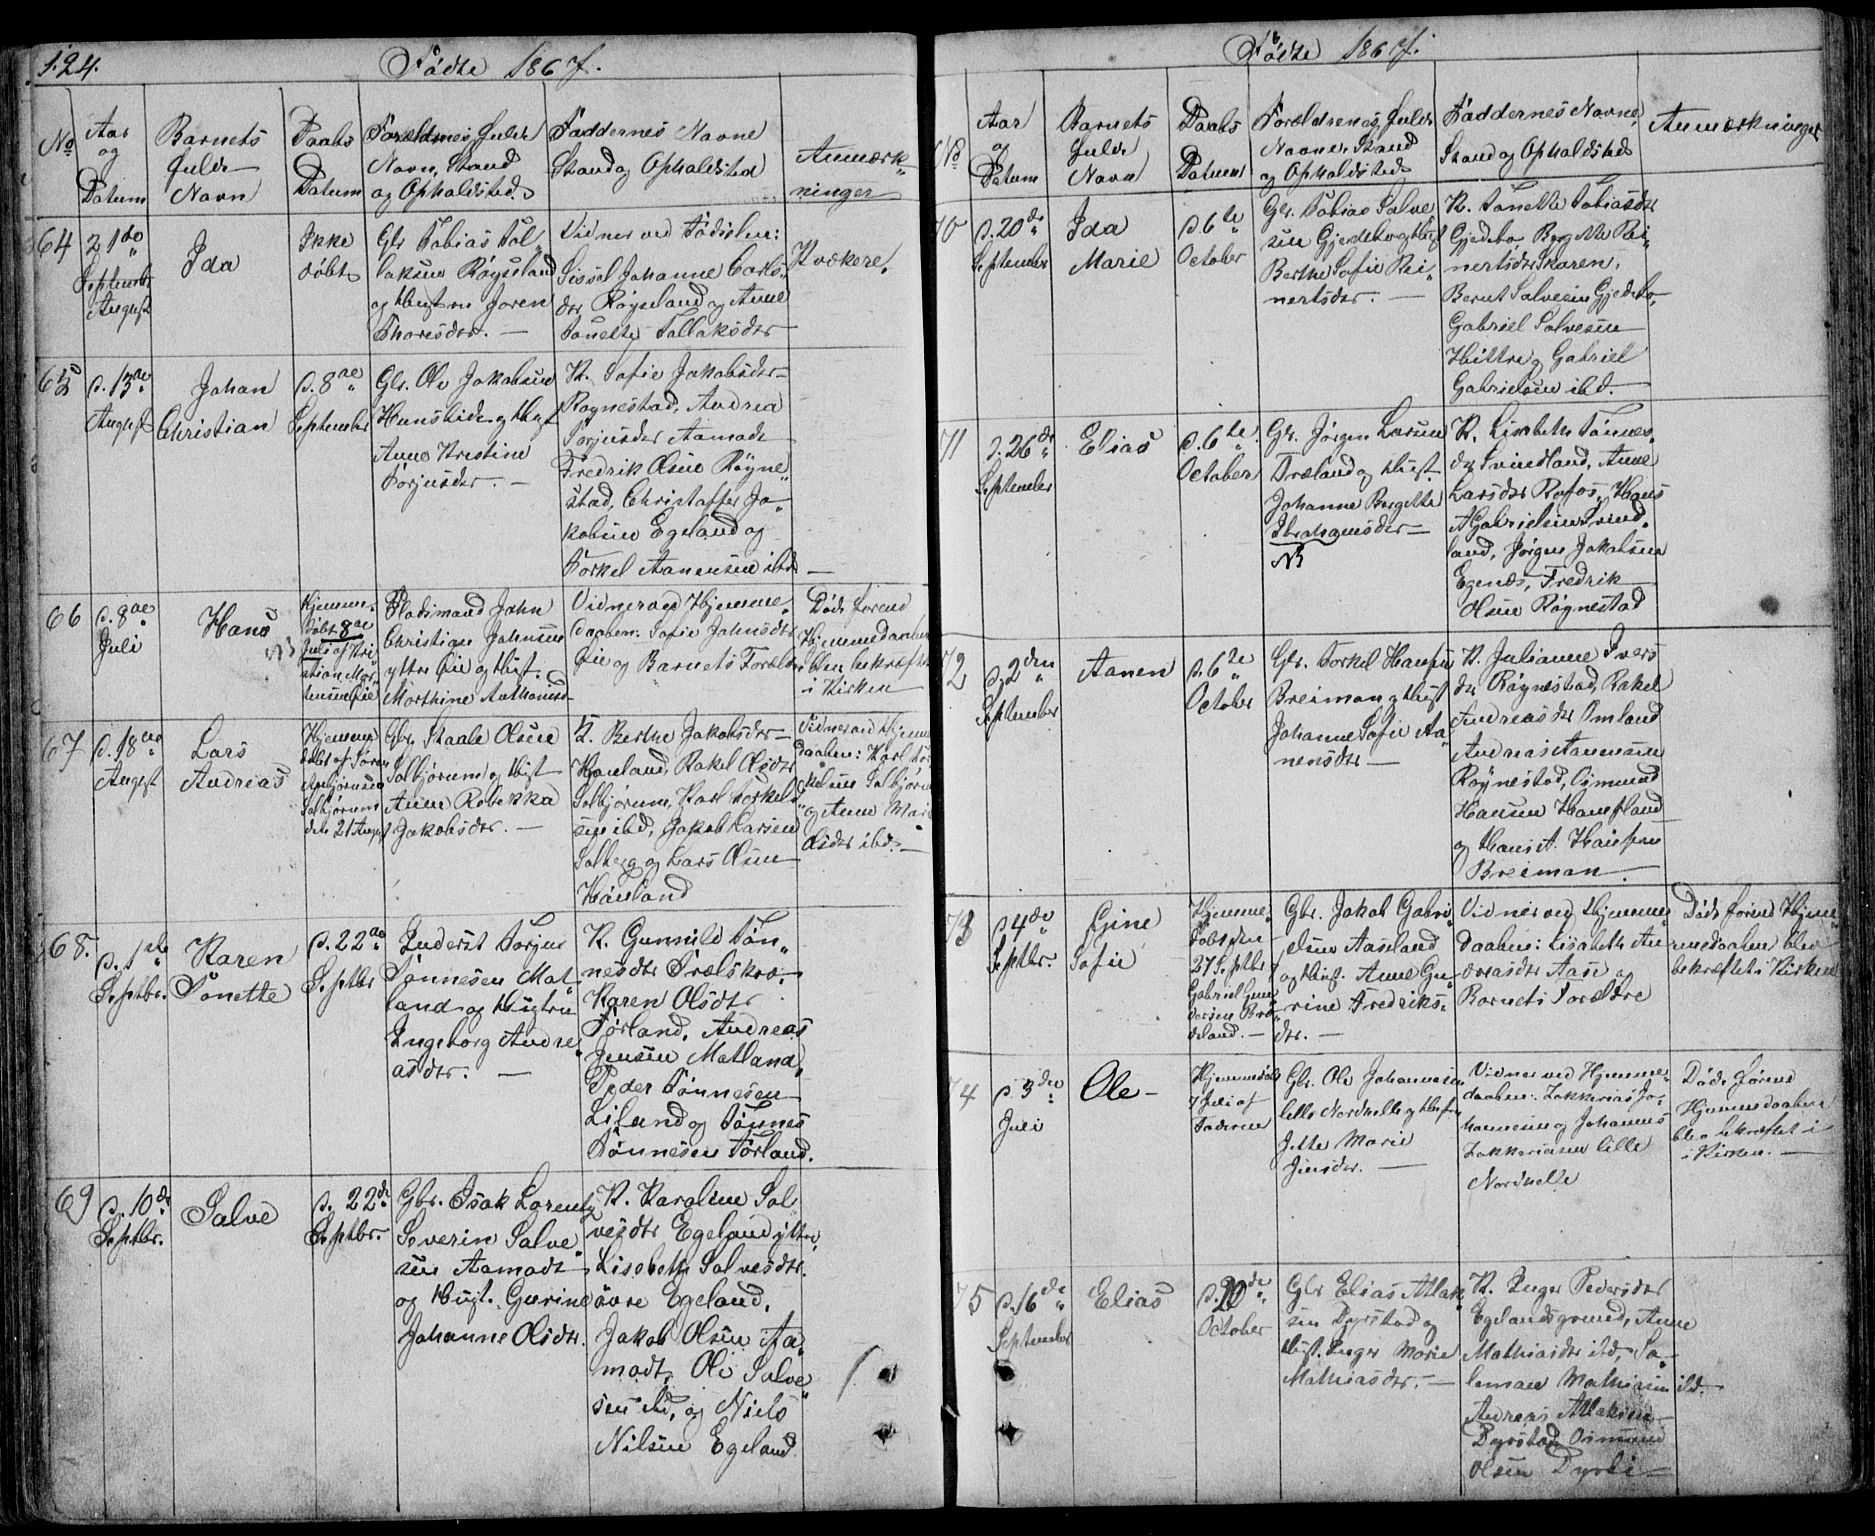 124.
Fødte 1867.
No
Aar
og
Datum
Barnets
fulde
Navn
Daabs
Datum
Forældrenes fulde
Navn, Stand
og Opholdssted
Faddernes Navne
Stand og Opholdsted
Anmærk-
ninger
64
21de
September
August
Ida
Ikke
døbt
Gbr Tobias Tol-
laksen Røgseland
og Hustru Joren
Thoresdtr. —
Vidner ved Fødselen:
Sissel Johanne
dtr Røgseland og Anne
Tonette Tollaksdtr
Kvækere.
65
d. 13de
August
Johan
Christian
d. 8de
September
Gbr. Ole Jakobsen
Hunsbide og Hust
Anne Kristine
Torjusdtr. —
K. Sofie Jakobsdtr
Røynestad, Andrea
Torjusdtr Aamodt
Fredrik Olsen Røyne-
stad, Christoffer Ja-
kobsen Egeland og
Torkel Aanensen ibd —
66
d. 8de
Juli
Hans
Hjemme-
døbt 8de
Juli af Kri-
stian Mor-
tensen Øie
Pladsmand John
Christian Johnsen
yttre Øie og Hust.
Morthine Anthonisd
Vidner ved Hjemme-
daaben: Sofie Johnsdtr
Øie og Barnets Forældre
Døde forend
Hjemmedaaben
blev bekræftet
i Kirken
67
d. 18de
August
Lars
Andreas
Hjemme
døbt af Søren
Asbjørnsen
Solbjørum
den 21 August
Gbr. Staale Olsen
Solbjørum og Hust
Anne Rebekka
Jakobsdtr. —
K. Berthe Jakobsdtr
Haaland, Rakel Olsdtr
Solbjørum, Karl Torkels-
sen ibd, Jakob Larsen
Solberg og Lars Olsen
Haaland
Vidner ved Hjemme
daaben: Karl Tor
kelsen Solbjørum
og Anne Marie
Olsdtr ibd. —
68.
d. 1ste
Septbr.
Karen
Tonette
d. 22de
Septbr
Inderst Torjus
Tønnesen Mat-
land og Hustru
Ingeborg Andre-
asdtr. —
K. Gunnild Tøn-
nesdtr Trælskra-
Karen Olsdtr
Førland, Andreas
Jensen Matland,
Peder Tønnesen
Liland og Tønnes
Tønnesen Førland.
69
d. 10de
Septbr.
Salve
d. 22de
Septbr.
Gbr. Isak Lorents
Severin Salve-
sen Aamodt
og Hust. Gurine
Johanne Olsdtr.
K. Karoline Sal
vesdtr Egeland yttre,
Lisebeth Salvesdtr.
øvre Egeland,
Jakob Olsen Aa-
modt, Ole Salve-
sen ibd, og Niels
Nilsen Egeland
Fødte 1867.
No
Aar
og
Datum
Barnets
fulde
Navn
Daabs
Datum
Forældrenes fulde
Navne, Stand
og Opholdsted
Faddernes Navne,
Stand og Opholdsted
Anmærkninger
70
d. 20de
September
Ida
Marie
d. 6te
October
Gbr. Tobias Salve
sen Gjedebo og Hust
Berthe Sofie Rei-
nertsdtr. —
K. Tonette Tobiasdtr
Gjedebo, Rei-
nertsdtr Skaren,
Bernt Salvesen Gjedebo,
Gabriel Salvesen
Hittre og Gabriel
Gabrielsen ibd.
71
d. 26de
September
Elias
d. 6te
October
Gbr. Jørgen Larsen
Træland og Hust.
Johanne Bergitte
Abrahamsdtr —
NB
K. Lisebeth Tønnes-
dtr Svindland, Anne
Larsdtr Rafos, Hans
A Gabrielsen Svind-
land, Jørgen Jakobsen
Egenæs, Fredrik
Olsen Røynestad
72
d. 2den
September
Aanen
d. 6te
October
Gbr. Torkel Hansen
Breiman og Hust
Johanne Sofie Aa-
nensdtr —
K. Julianne Ivers
dtr Røynestad, Rakel
Andreasdtr Omland
Andreas Aanensen
Røynestad, Osmund
Hansen Hamfland
og Hans A. Hansen
Breiman.
73
d. 4de
Septbr.
Gine
Sofie
Hjemme-
døbt den
27 Septbr
Gabriel Gun-
dersen
Gbr. Jakob Gabri-
elsen Aaseland
og Hust. Anne Gu-
rine Fredriks-
dtr. —
Vidner ved Hjemme
daaben: Lisabeth An-
dreasdtr Aase og
Barnets Forældre
Døde forend Hjem-
medaaben blev
bekræftet i Kirken
74
d. 3den
Juli
Ole —
Hjemmedøbt
7 Juli af
Faderen
Gbr. Ole Johannesen
lille Nordhelle og Hust
Jette Marie
Jensdtr. —
Vidner ved Hjemme-
daaben: Zakkarias Jo-
hannesen og Johannes
Zakkariasen lille
Nordhelle
Døde forend
Hjemmedaaben
blev bekræftet i
i Kirken. —
75
d. 16de
September
Elias
d. 20de
October
Gbr Elias Atlak-
sen Dyrstad og
Hust. Inger Marie
Mathiasdtr. —
K. Inger Pedersdtr
Egelandsgrund, Anne
Mathiasdtr ibd, Sa-
lemon Mathiasen ibd.
Andreas Atlaksen
Dyrstad, Osmund
Olsen Dyrli —